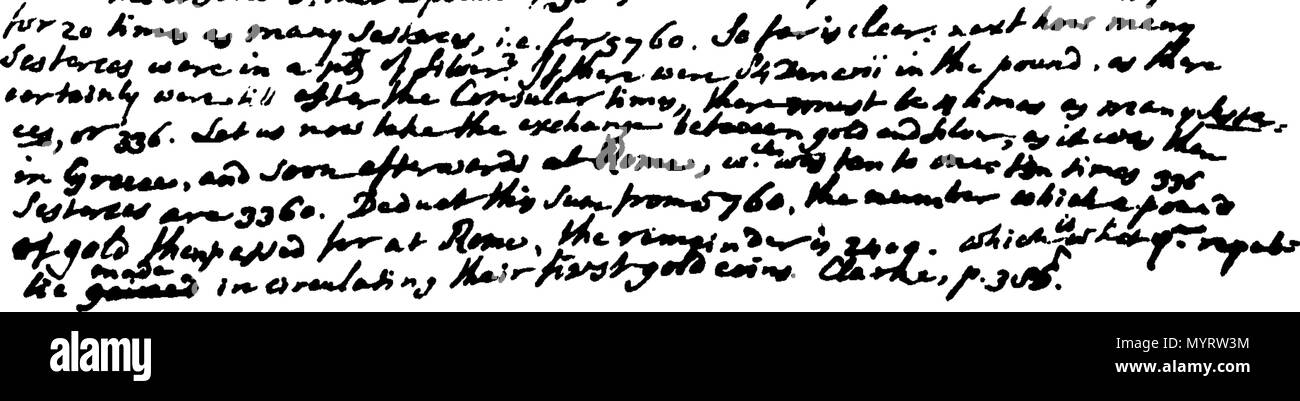 for 20 times as many Sesterces, i.e. for 5760. So far is clear: next how many
Sesterces were in a pd of Silver? If there were 84 Denarii in the pound, as there
certainly were till after the Consular times, there must be 4 times as many Sester=
ces, or 336. Let us now take the exchange between gold and silver, as it was then
in Greece, and soon afterwards at Rome, wch was ten to one: ten times 336
Sesterces are 3360. Deduct this Sum from 5760, the number which a pound
of gold then passed for at Rome, the remainder is 2400. which is what ye repub
lic made in circulating their first gold coins. Clarke, p.
alamy
Image ID: MYRW3M
www.alamy.com